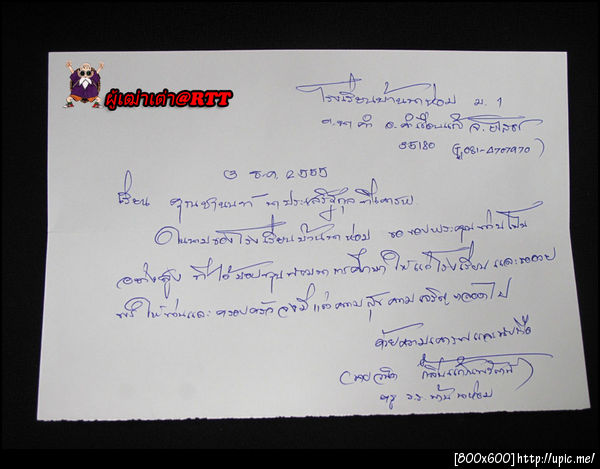 ผู้เฒ่าเต่า@RTT
โรงเรียนบ้านนาห่อม ม. 1
อ.คำเขื่อนแก้ว จ.ยโสธร
35180
3 ธ.ค. 2555
เรียน คุณชานนท์ ที่เคารพ
ในนามของโรงเรียนบ้านนาห่อม ขอขอบพระคุณท่านเป็น
อย่างสูง ที่ได้มอบทุนการศึกษา ให้แก่โรงเรียน และขออวย
พรให้ท่านและครอบครัว จงมีแต่ความสุข ความเจริญ ตลอดไป
ด้วยความเคารพและนับถือ
ครู ร.ร. บ้านนาห่อม
[800x600]http://upic.me/